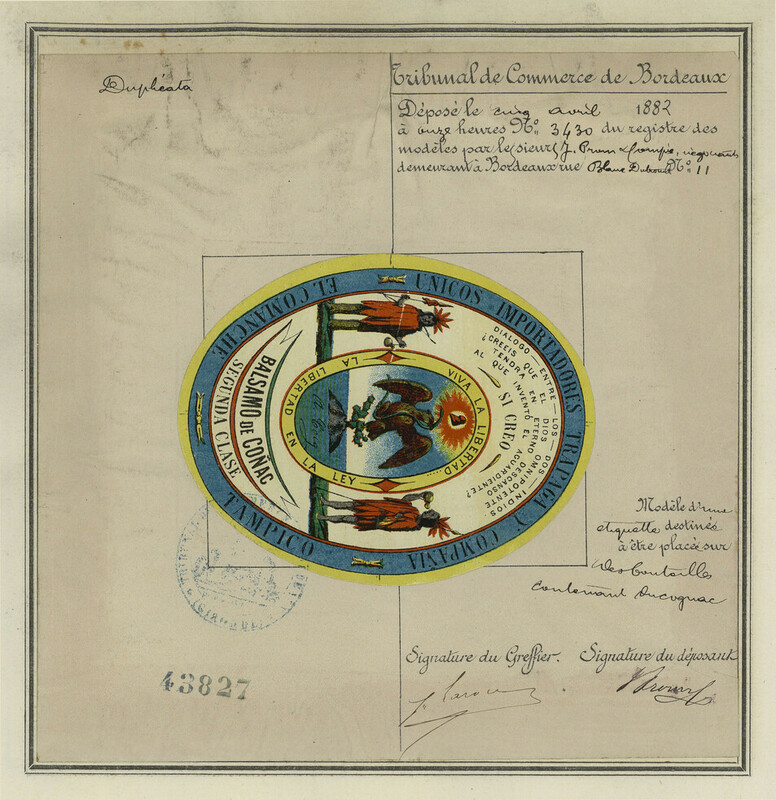 Duplicata
Tribunal de Commerce de Bordeaux
Déposé le cinq avril 1882
à onze heures No. 3430 du registre des
modèles par le sieurs J. Prom
demeurant à Bordeaux rue No. 11
EL COMANCHE
UNICOS IMPORTADORES TRAPAGA Y COMPAÑIA
TAMPICO
DIALOGO—ENTRE—LOS—DOS—INDIOS
¿CREEIS QUE EL DIOS OMNIPOTENTE
TENDRA EN ETERNO DESCANSO
AL QUE INVENTÓ EL AGUARDIENTE?
SI CREO
VIVA LA LIBERTAD
LA LIBERTAD EN LA LEY
BALSAMO DE COÑAC
SEGUNDA CLASE
Modèle d'une
etiquette destinés
à être placés sur
des bouteilles
contenant du cognac
Signature du Greffier. Signature du déposant
43827